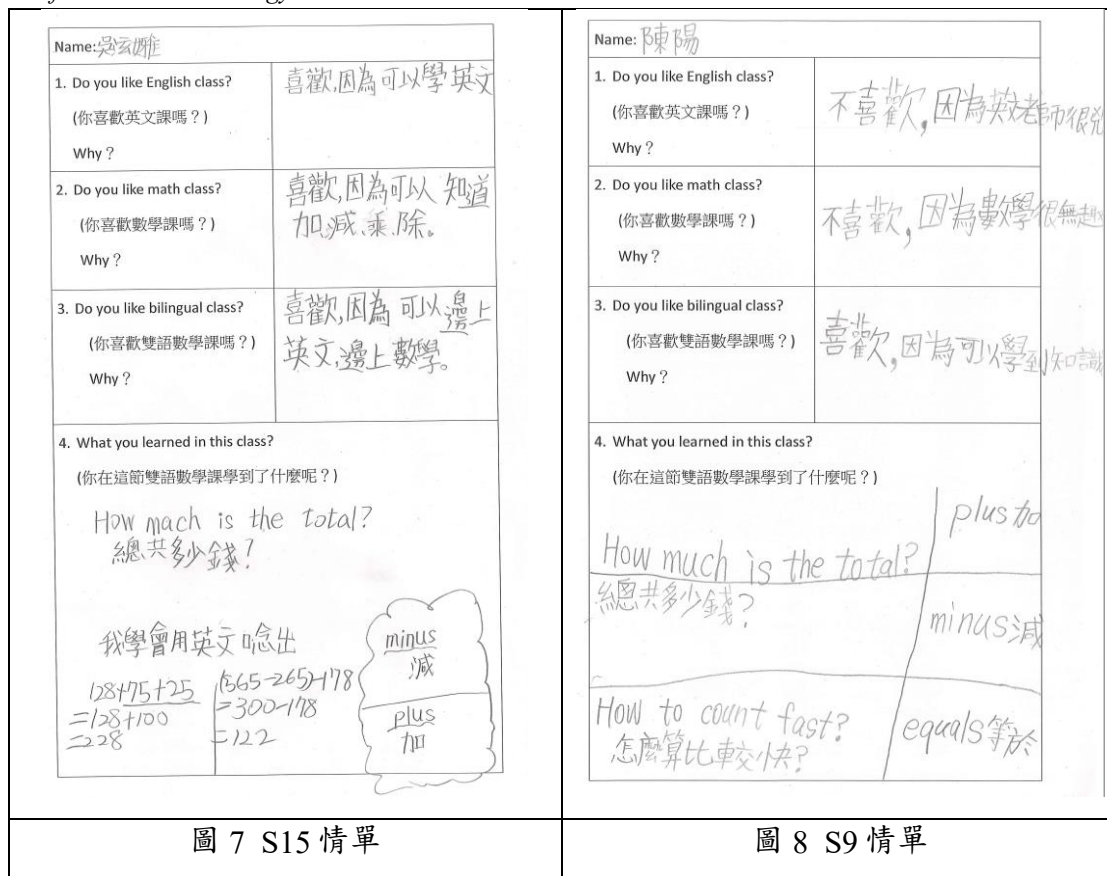 Name:吳玄雅
1. Do you like English class?
(你喜歡英文課嗎？)
Why？
喜歡,因為可以學英文
2. Do you like math class?
(你喜歡數學課嗎？)
Why？
喜歡,因為可以 知道
加、減、乘、除。
3. Do you like bilingual class?
(你喜歡雙語數學課嗎？)
Why？
喜歡,因為 可以邊上
英文,邊上數學。
4. What you learned in this class?
(你在這節雙語數學課學到了什麼呢？)
How mach is the total?
總共多少錢?
我學會用英文唸出
128+75+25
=128+100
=228
(565-265)-178
=300-178
=122
minus
減
plus
加
圖 7 S15 情單
Name: 陳陽
1. Do you like English class?
(你喜歡英文課嗎？)
Why？
不喜歡,因為英文老師很兇
2. Do you like math class?
(你喜歡數學課嗎？)
Why？
不喜歡,因為數學很無趣
3. Do you like bilingual class?
(你喜歡雙語數學課嗎？)
Why？
喜歡,因為可以學到知識
4. What you learned in this class?
(你在這節雙語數學課學到了什麼呢？)
How much is the total?
總共多少錢?
How to count fast?
怎麼算比較快?
plus加
minus減
equals等於
圖 8 S9 情單